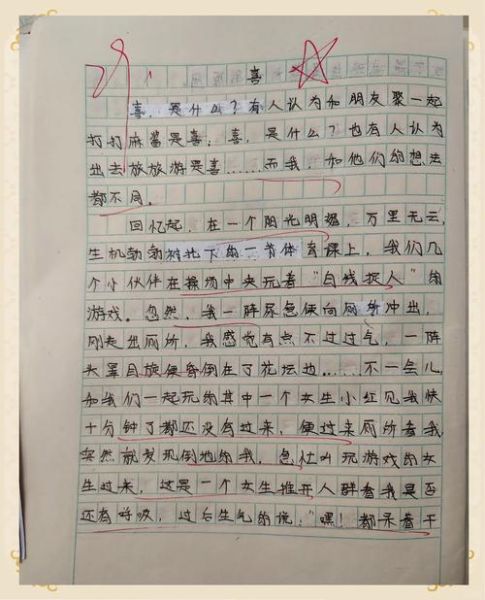 喜
喜，是什么？有人认为和朋友聚一起
打打麻酱是喜；喜，是什么？也有人认为
出去旅旅游是喜……而我，和他们的想法
都不同。
回忆起，在一个阳光明媚，万里无云，
生机勃勃树花下的一节体育课上，我们几
个小伙伴在操场中央玩着“白线捉人”的
游戏。忽然，我一阵尿急便向厕所冲出，
刚走出厕所，我感觉有点不过过气，一阵
头晕目旋便昏倒在了花坛边……不一会儿，
和我们一起玩的其中一个女生小红见我快
十分钟了都还没有过来，便过来厕所看我
突然就发现倒地的我，急忙叫玩游戏的女
生过来，这是一个女生推开人群看我是否
还有呼吸，过后生气的说：“嘿！都杀着干